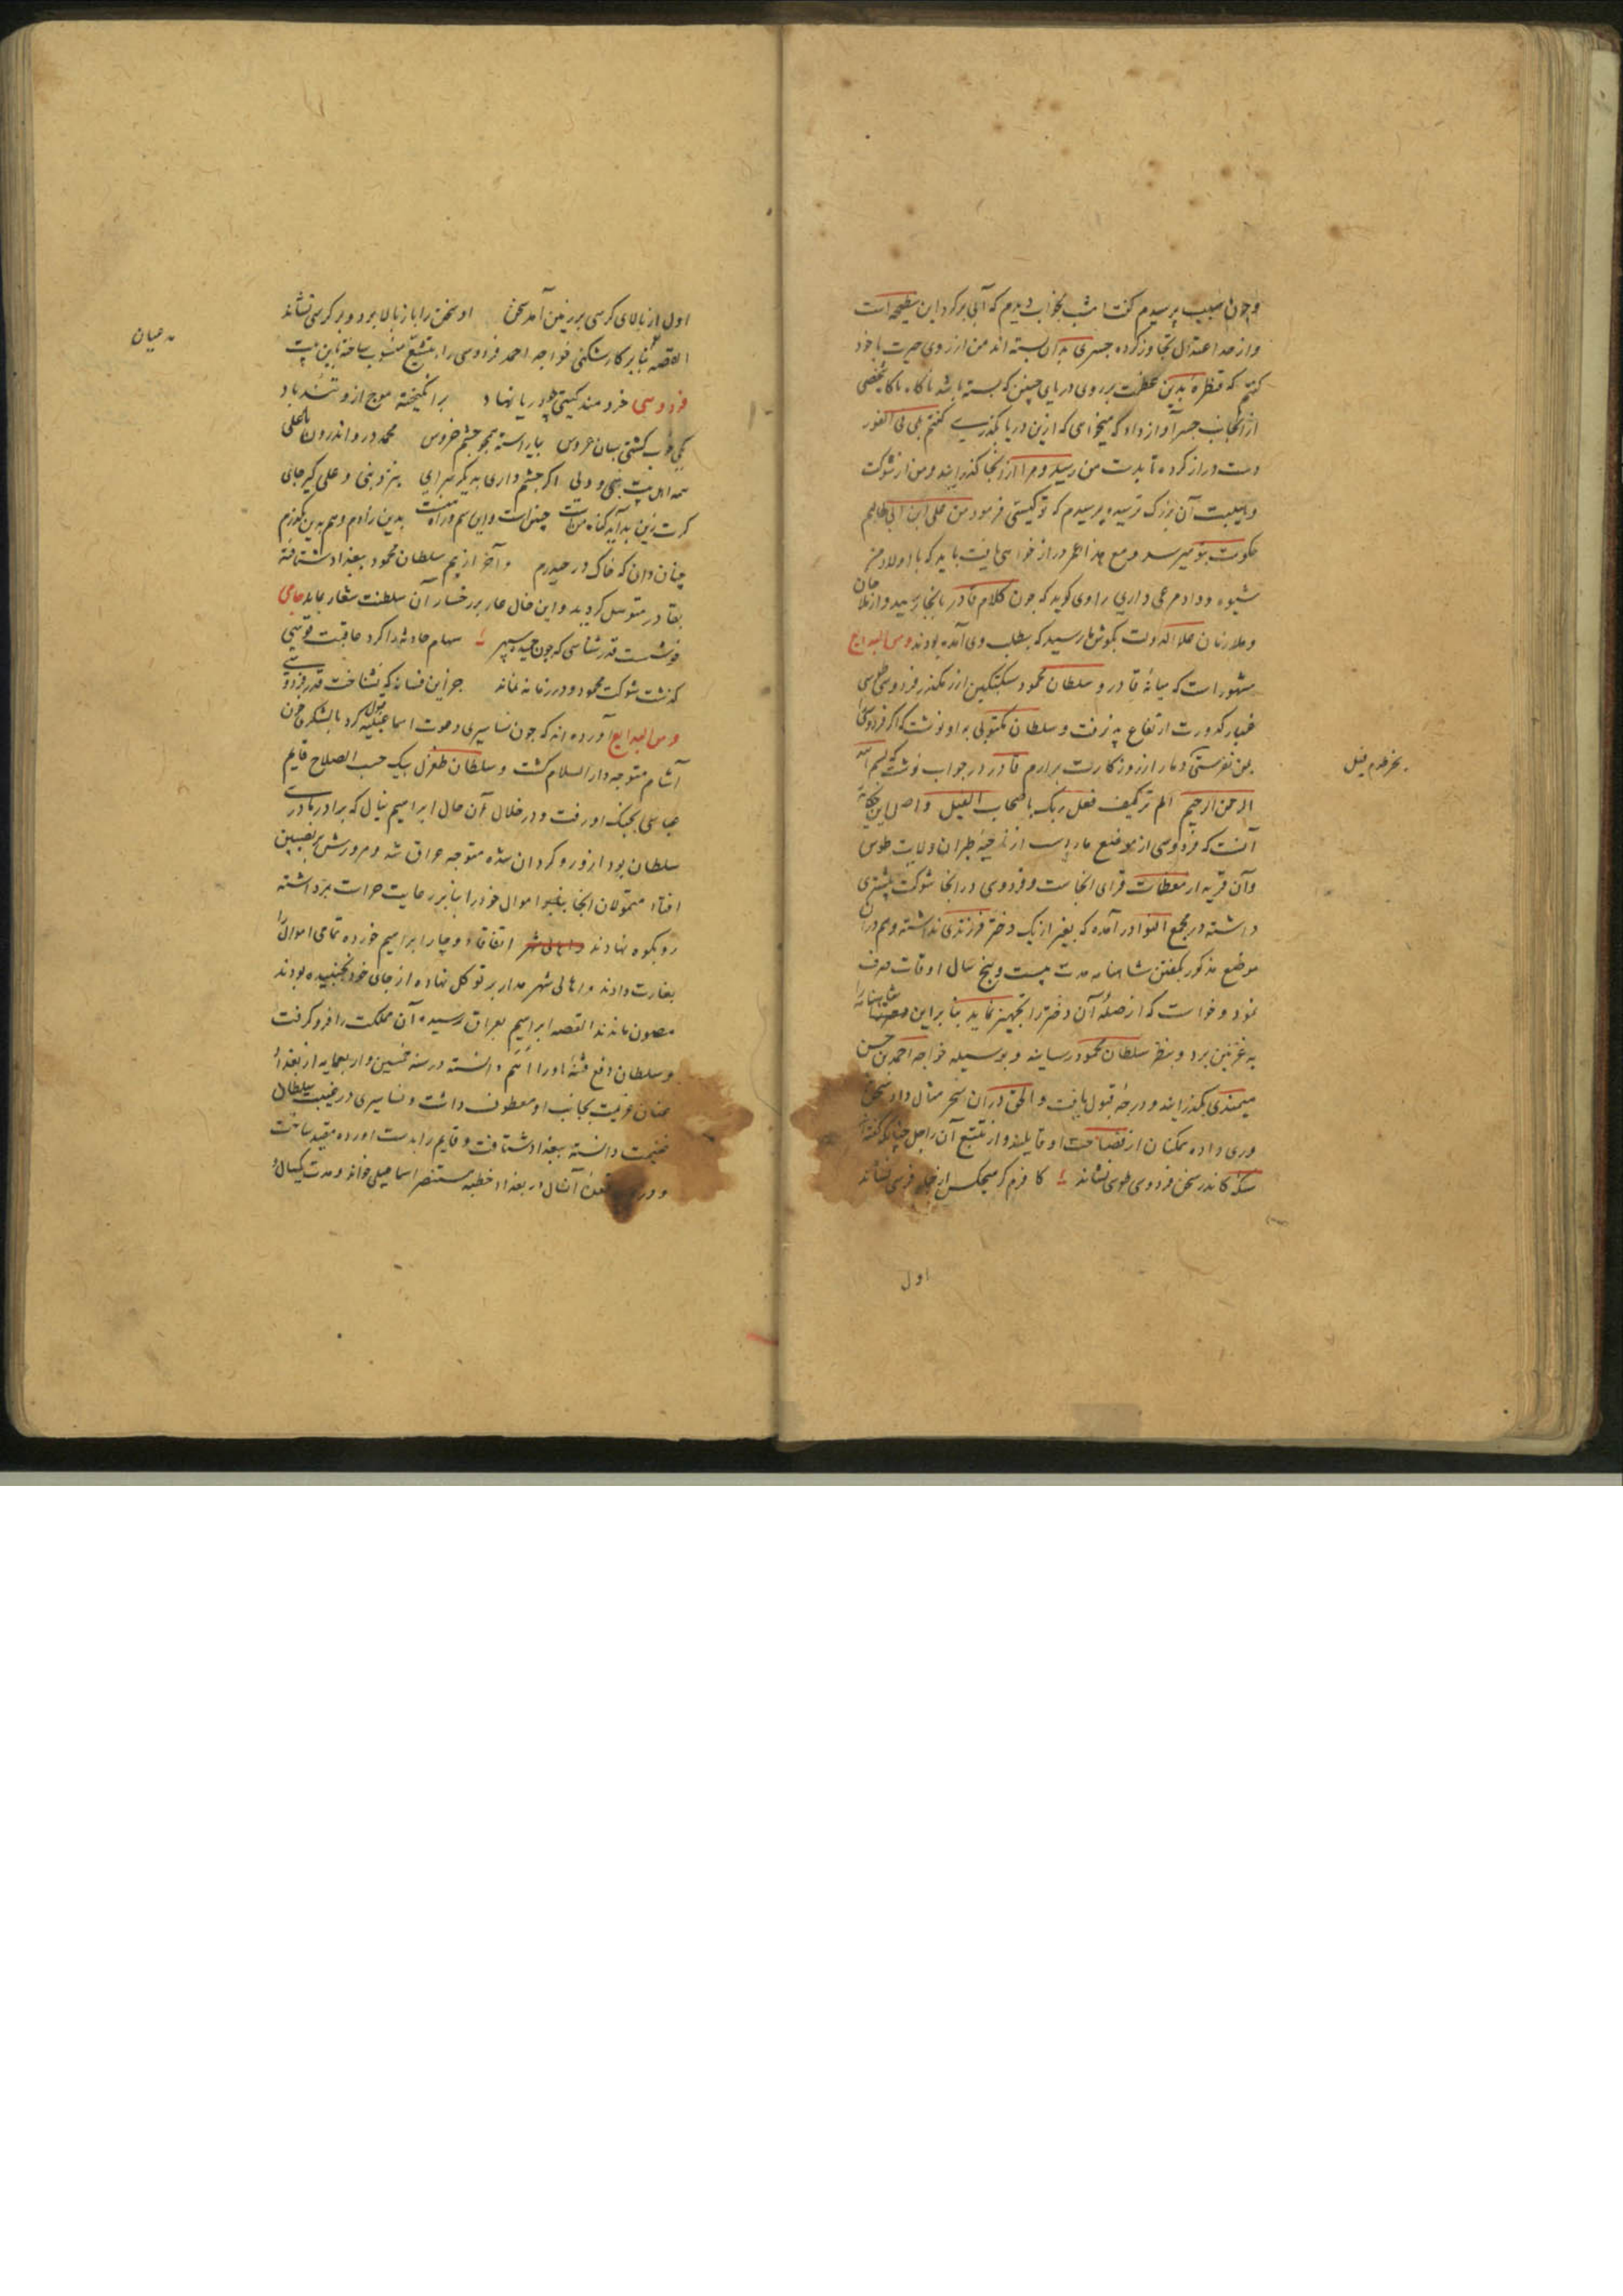 وچون سبب پرسیدم گفت امشب بخواب دیدم که آبی برکرد این بطیحه است
واز حد اعتدال تجاوز کرده جسری بدان بسته اند من از روی حیرت با خود
کفتم که قنطره بدین عظمت بر روی دریای چنین که بسته باشد ناگاه شخصی
از آنجانب جسر آواز داد که میخواهی که ازین دریا بگذری گفتم بلی فی الفور
دست دراز کرده تا بدست من رسید و مرا از آنجا گذرانید ومن از شوکت
وهیبت آن بزرگ ترسیده پرسیدم که تو کیستی فرمود من علی ابن ابی طالبم
حکومت بتو میرسد ومع هذا عمر دراز خواهی یافت باید که با اولاد من
شیوه وداد مرعی داری راوی کوید که چون کلام قادر بانجا رسید آواز ملاحان
وملازمان علاء الدوله بگوش ما رسید که بطلب وی آمده بودند ومن البدایع
مشهور است که میانه قادر و سلطان محمود سبکتکین از رهگذر فردوسی طوسی
غبار کدورت ارتفاع پذیرفت و سلطان مکتوبی به او نوشت که اگر فردوسی را
بمن نفرستی دمار از روزگارت برارم قادر در جواب نوشت که بسم الله
الرحمن الرحیم الم تر کیف فعل ربک باصحاب الفیل واصل این حکایة
آنست که فردوسی از موضع از ناحیه طبران ولایت طوس
وآن قریه از معظمات قرای انجاست و فردوسی در انجا شوکت بیشتری
داشته در مجمع النوادر آمده که بغیر از یک دختر فرزندی نداشته وهم در آن
موضع مذکور بگفتن شاهنامه مدت بیست وپنج سال اوقات صرف
نمود و خواست که از صله آن دختر را تجهیز نماید بنا براین شاهنامه را
به غزنین برد و بنظر سلطان محمود رسانید و بوسیله خواجه احمد بن حسن
میمندی بگذرانید و درجه قبول یافت و الحق در آن سحر مثال داد سخن
وری داده همکنان از فصاحت او قایلند و از تتبع آن راجل چنانکه گفته اند
سکه کاندر سخن فردوسی طوسی نشاند کافرم گر هیچکس از فرسی نشاند
اول
اول از بالای کرسی بر زمین آمد سخن او سخن را باز بالا برد و بر کرسی نشاند
القصه بنا بر کارشکنی خواجه احمد فردوسی را به تشیع منسوب ساخته باین بیت
فردوسی خردمند کیتی چو دریا نهاد برانگیخته موج ازو تندباد
یکی خوب کشتی بسان عروس بیاراسته همچو چشم خروس محمد درو اندرون با علی
همه اهل بیت نبی و ولی اگر چشم داری بدیگر سرای بنزد نبی و علی گیر جای
گرت زین بد آید گناه من است چنین است واین رسم وراه منست بدین زادم وهم بدین بگذرم
چنان دان که خاک در حیدرم وآخر از بیم سلطان محمود ببغداد شتافته
بقادر متوسل گردید واین خال عار بر رخسار آن سلطنت شعار بماند جامی
خوشست قدرشناسی که چون خمیده سپهر سهام حادثه را کرد عاقبت قوسی
گذشت شوکت محمود و در زمانه نماند جز این فسانه که نشناخت قدر فردوسی
ومن البدایع آورده اند که چون بساسیری دعوت اسماعیلیه قبول کرد با لشکری چون
آشام متوجه دار السلام گشت و سلطان طغرل بیک حسب الصلاح قایم
عباسی بجنگ او رفت و در خلال آن حال ابراهیم ینال که برادر مادری
سلطان بود ازو رو گردان شده متوجه عراق شد ومرورش به نصیبین
افتاد متمولان انجا اموال خود را بنا بر رعایت حراست برداشته
رو بکوه نهادند اتفاقا دوچار ابراهیم خورده تمامی اموال را
بغارت دادند و اهالی شهر مدار بر توکل نهاده از جای خود نجنبیده بودند
مصون ماندند القصه ابراهیم بعراق رسیده آن مملکت را فرو گرفت
وسلطان دفع فتنه او را اهم دانسته در سنه خمسین واربعمایه از بغداد
عنان عزیمت بجانب او معطوف داشت و بساسیری در غیبت سلطان
غنیمت دانسته ببغداد شتافت و قایم را بدست اورده مقید ساخت
و در آنسال در بغداد خطبه مستنصر اسماعیلی خواند ومدت یکسال